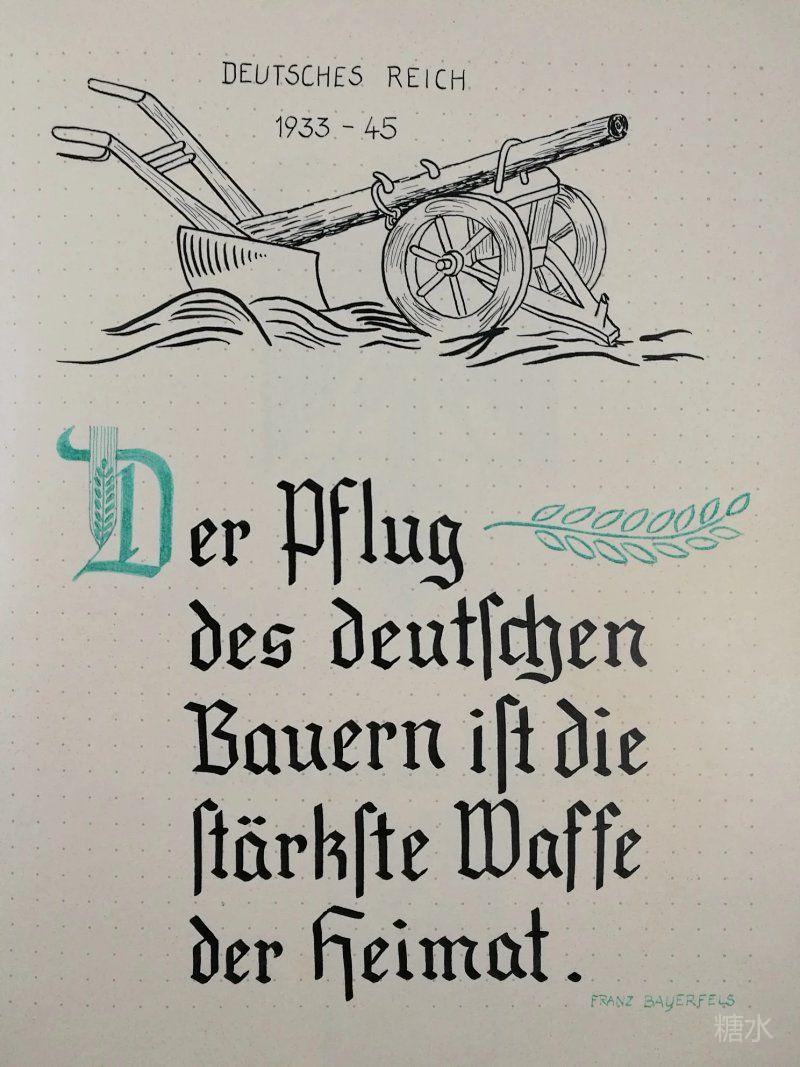 DEUTSCHES REICH
1933 - 45
Der Pflug
des deutſchen
Bauern iſt die
ſtärkſte Waffe
der Heimat.
FRANZ BAYERFELS
糖水